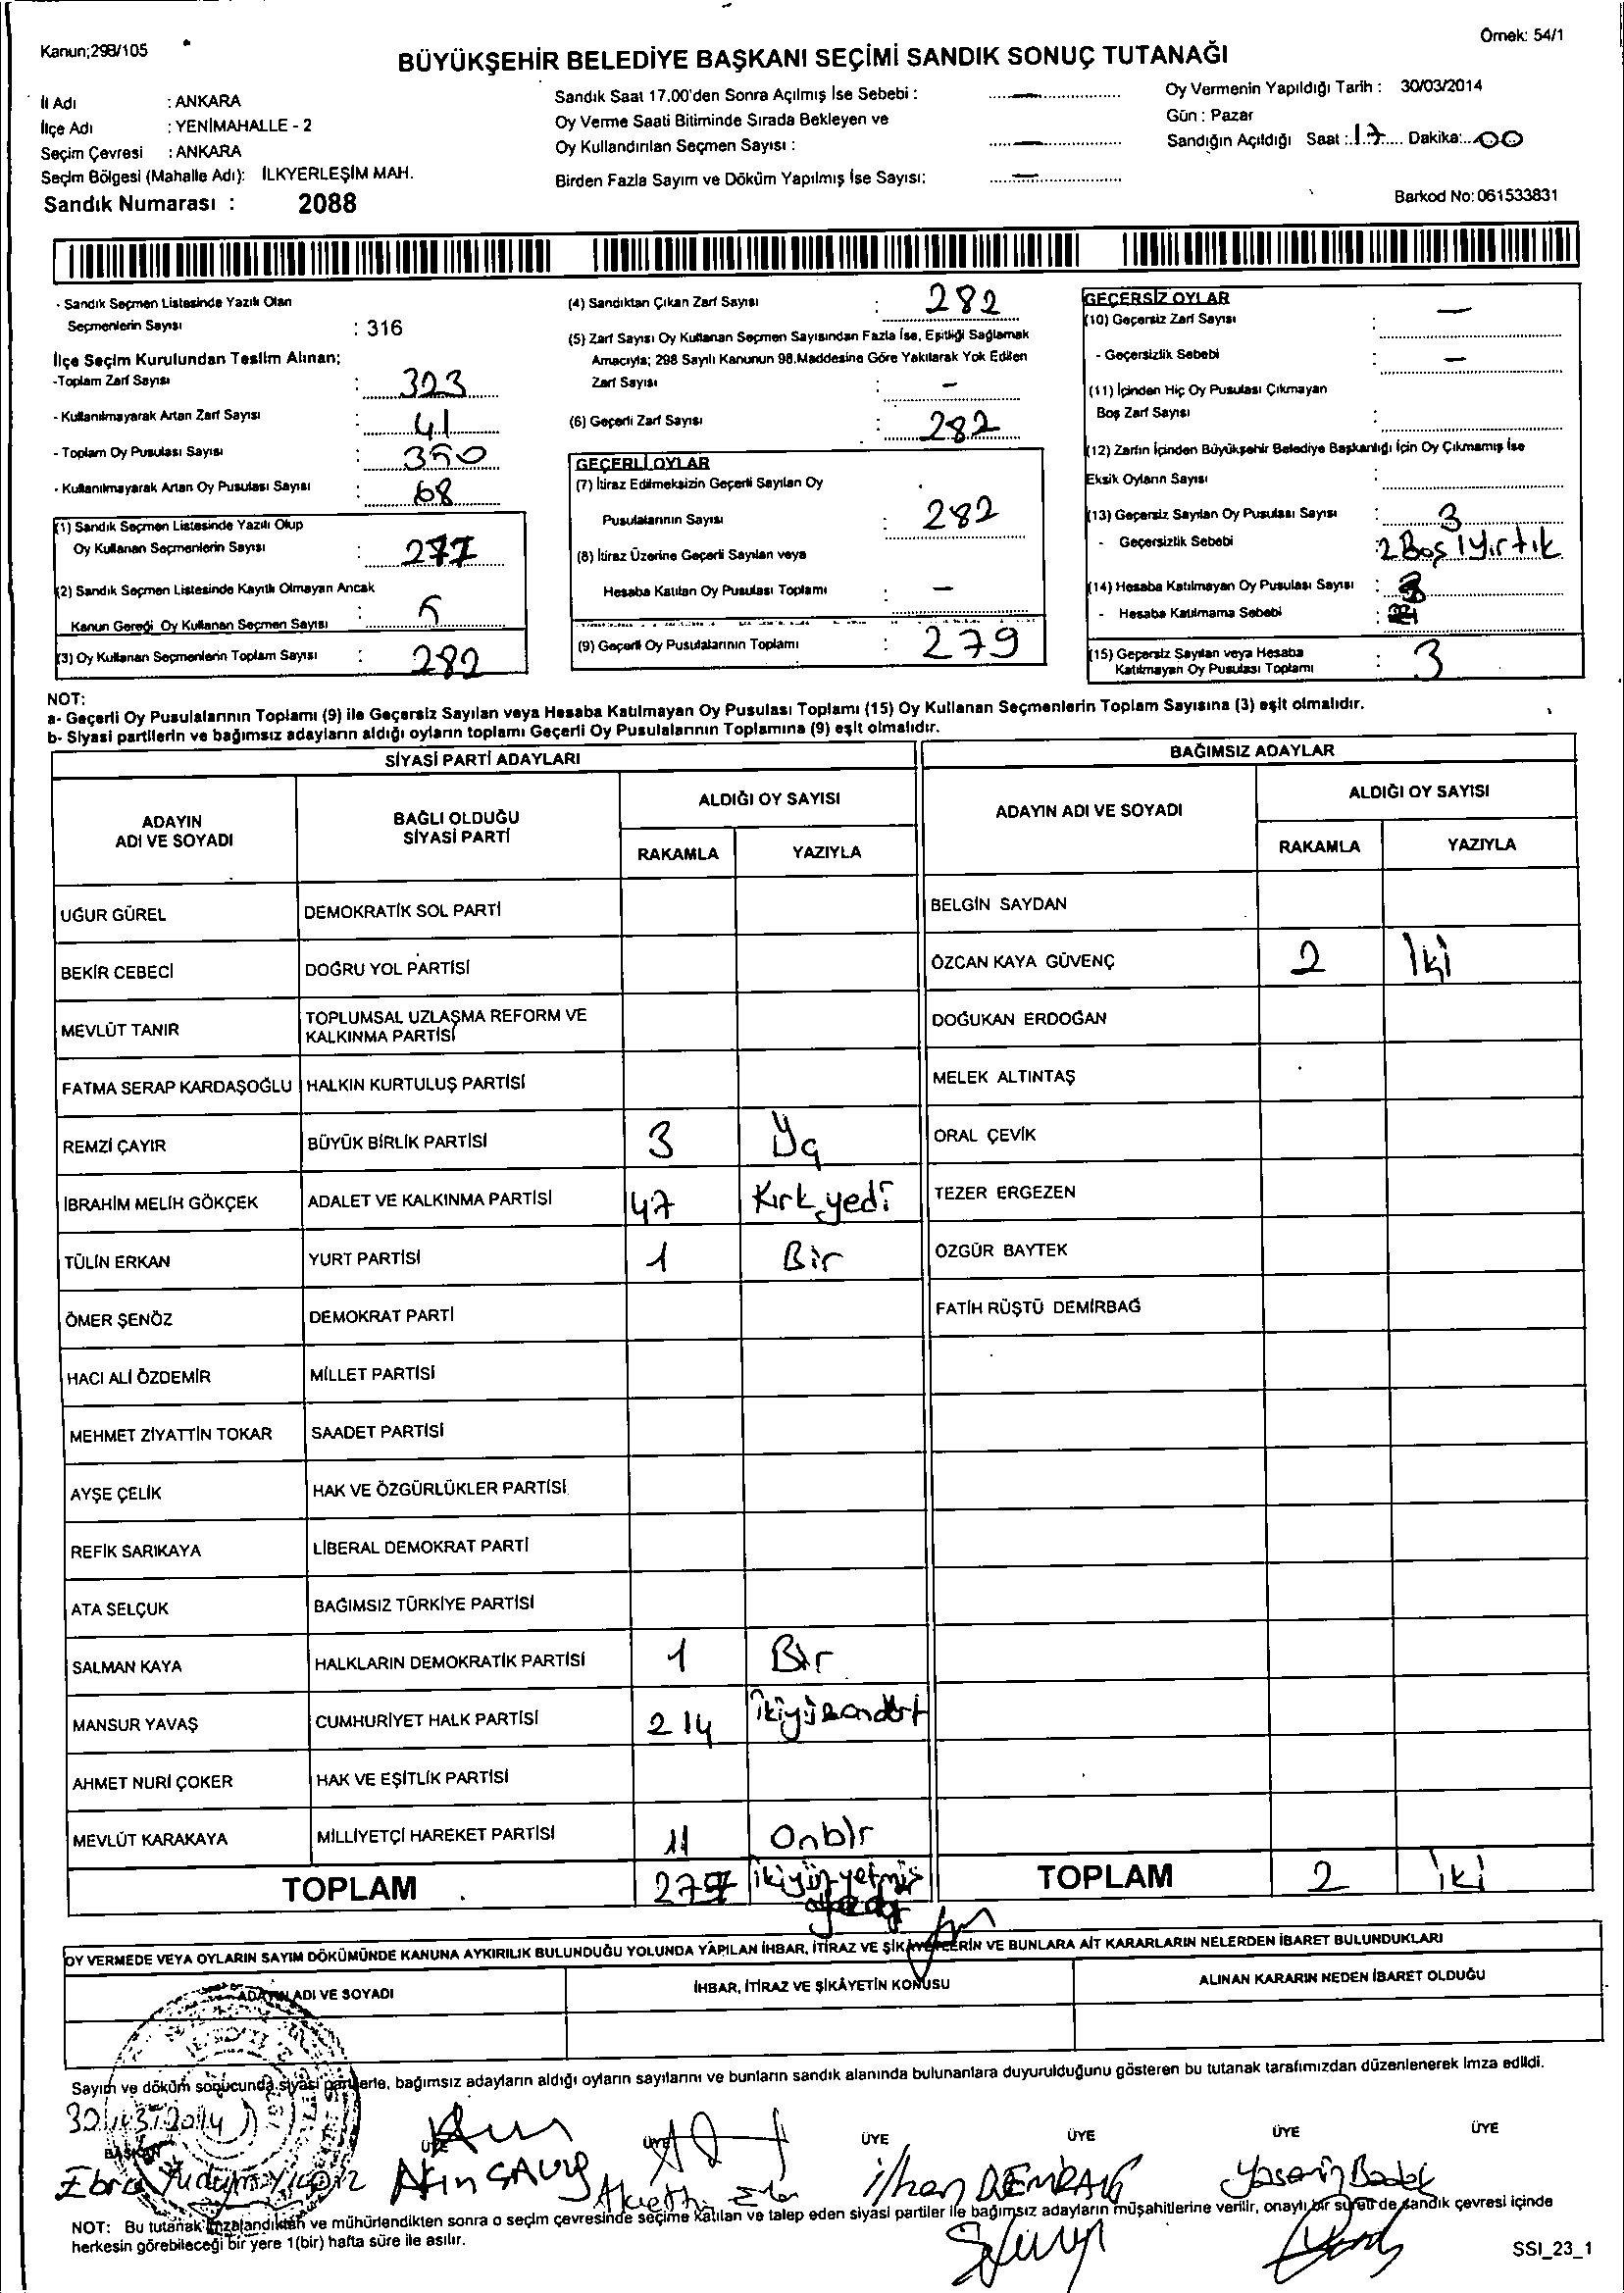 Kanun;298/105
Örnek: 54/1
BÜYÜKŞEHİR BELEDİYE BAŞKANI SEÇİMİ SANDIK SONUÇ TUTANAĞI
İl Adı : ANKARA
İlçe Adı : YENİMAHALLE - 2
Seçim Çevresi : ANKARA
Seçim Bölgesi (Mahalle Adı): İLKYERLEŞİM MAH.
Sandık Numarası : 2088
Sandık Saat 17.00'den Sonra Açılmış İse Sebebi : —
Oy Verme Saati Bitiminde Sırada Bekleyen ve
Oy Kullandırılan Seçmen Sayısı : —
Birden Fazla Sayım ve Döküm Yapılmış İse Sayısı: —
Oy Vermenin Yapıldığı Tarih : 30/03/2014
Gün : Pazar
Sandığın Açıldığı Saat : 17 Dakika: 00
Barkod No: 061533831
- Sandık Seçmen Listesinde Yazılı Olan
Seçmenlerin Sayısı : 316
İlçe Seçim Kurulundan Teslim Alınan;
-Toplam Zarf Sayısı : 323
- Kullanılmayarak Artan Zarf Sayısı : 41
- Toplam Oy Pusulası Sayısı : 350
- Kullanılmayarak Artan Oy Pusulası Sayısı : 68
(1) Sandık Seçmen Listesinde Yazılı Olup
Oy Kullanan Seçmenlerin Sayısı : 277
(2) Sandık Seçmen Listesinde Kayıtlı Olmayan Ancak
Kanun Gereği Oy Kullanan Seçmen Sayısı : 5
(3) Oy Kullanan Seçmenlerin Toplam Sayısı : 282
(4) Sandıktan Çıkan Zarf Sayısı : 282
(5) Zarf Sayısı Oy Kullanan Seçmen Sayısından Fazla İse, Eşitliği Sağlamak
Amacıyla; 298 Sayılı Kanunun 98.Maddesine Göre Yakılarak Yok Edilen
Zarf Sayısı : —
(6) Geçerli Zarf Sayısı : 282
GEÇERLİ OYLAR
(7) İtiraz Edilmeksizin Geçerli Sayılan Oy
Pusulalarının Sayısı : 282
(8) İtiraz Üzerine Geçerli Sayılan veya
Hesaba Katılan Oy Pusulası Toplamı : —
(9) Geçerli Oy Pusulalarının Toplamı : 279
GEÇERSİZ OYLAR
(10) Geçersiz Zarf Sayısı : —
- Geçersizlik Sebebi : —
(11) İçinden Hiç Oy Pusulası Çıkmayan
Boş Zarf Sayısı :
(12) Zarfın İçinden Büyükşehir Belediye Başkanlığı İçin Oy Çıkmamış İse
Eksik Oyların Sayısı :
(13) Geçersiz Sayılan Oy Pusulası Sayısı : 3
- Geçersizlik Sebebi : 2 Boş 1 yırtık
(14) Hesaba Katılmayan Oy Pusulası Sayısı :
- Hesaba Katılmama Sebebi :
(15) Geçersiz Sayılan veya Hesaba
Katılmayan Oy Pusulası Toplamı : 3
NOT:
a- Geçerli Oy Pusulalarının Toplamı (9) ile Geçersiz Sayılan veya Hesaba Katılmayan Oy Pusulası Toplamı (15) Oy Kullanan Seçmenlerin Toplam Sayısına (3) eşit olmalıdır.
b- Siyasi partilerin ve bağımsız adayların aldığı oyların toplamı Geçerli Oy Pusulalarının Toplamına (9) eşit olmalıdır.
SİYASİ PARTİ ADAYLARI
BAĞIMSIZ ADAYLAR
ADAYIN ADI VE SOYADI
BAĞLI OLDUĞU SİYASİ PARTİ
ALDIĞI OY SAYISI
RAKAMLA YAZIYLA
ADAYIN ADI VE SOYADI
ALDIĞI OY SAYISI
RAKAMLA YAZIYLA
UĞUR GÜREL DEMOKRATİK SOL PARTİ BELGİN SAYDAN
BEKİR CEBECİ DOĞRU YOL PARTİSİ ÖZCAN KAYA GÜVENÇ 2 İki
MEVLÜT TANIR TOPLUMSAL UZLAŞMA REFORM VE KALKINMA PARTİSİ DOĞUKAN ERDOĞAN
FATMA SERAP KARDAŞOĞLU HALKIN KURTULUŞ PARTİSİ MELEK ALTINTAŞ
REMZİ ÇAYIR BÜYÜK BİRLİK PARTİSİ 3 Üç ORAL ÇEVİK
İBRAHİM MELİH GÖKÇEK ADALET VE KALKINMA PARTİSİ 47 Kırk yedi TEZER ERGEZEN
TÜLİN ERKAN YURT PARTİSİ 1 Bir ÖZGÜR BAYTEK
ÖMER ŞENÖZ DEMOKRAT PARTİ FATİH RÜŞTÜ DEMİRBAĞ
HACI ALİ ÖZDEMİR MİLLET PARTİSİ
MEHMET ZİYATTİN TOKAR SAADET PARTİSİ
AYŞE ÇELİK HAK VE ÖZGÜRLÜKLER PARTİSİ
REFİK SARIKAYA LİBERAL DEMOKRAT PARTİ
ATA SELÇUK BAĞIMSIZ TÜRKİYE PARTİSİ
SALMAN KAYA HALKLARIN DEMOKRATİK PARTİSİ 1 Bir
MANSUR YAVAŞ CUMHURİYET HALK PARTİSİ 214 ikiyüzondört
AHMET NURİ ÇOKER HAK VE EŞİTLİK PARTİSİ
MEVLÜT KARAKAYA MİLLİYETÇİ HAREKET PARTİSİ 11 Onbir
TOPLAM 277 ikiyüzyetmiş TOPLAM 2 iki
OY VERMEDE VEYA OYLARIN SAYIM DÖKÜMÜNDE KANUNA AYKIRILIK BULUNDUĞU YOLUNDA YAPILAN İHBAR, İTİRAZ VE ŞİKAYETLERİN VE BUNLARA AİT KARARLARIN NELERDEN İBARET BULUNDUKLARI
ADAYIN ADI VE SOYADI İHBAR, İTİRAZ VE ŞİKÂYETİN KONUSU ALINAN KARARIN NEDEN İBARET OLDUĞU
Sayım ve döküm sonucunda siyasi partilerle, bağımsız adayların aldığı oyların sayılarını ve bunların sandık alanında bulunanlara duyurulduğunu gösteren bu tutanak tarafımızdan düzenlenerek imza edildi.
30/03/2014
BAŞKAN ÜYE ÜYE ÜYE ÜYE ÜYE ÜYE
Ebru Akın İlhan Yasemin
NOT: Bu tutanak imzalandıktan ve mühürlendikten sonra o seçim çevresinde seçime katılan ve talep eden siyasi partiler ile bağımsız adayların müşahitlerine verilir, onaylı bir sureti de sandık çevresi içinde
herkesin görebileceği bir yere 1(bir) hafta süre ile asılır.
SSI_23_1